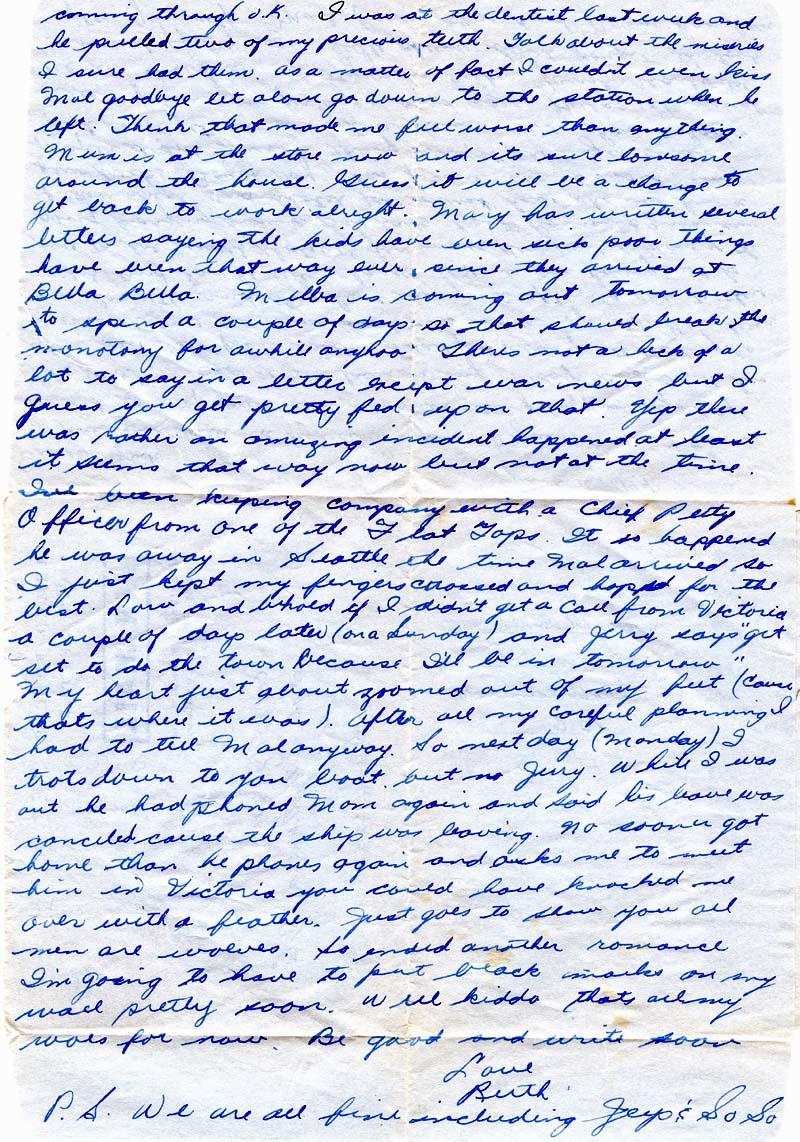 coming through O.K. I was at the dentist last week and
he pulled two of my precious teeth. Talk about the miseries
I sure had them. as a matter of fact I couldn't even kiss
Mal goodbye let alone go down to the station when he
left. Think that made me feel worse than anything.
Mum is at the store now and its sure lonesome
around the house. Guess it will be a change to
get back to work alright. Mary has written several
letters saying the kids have been sick poor things
have been that way ever since they arrived at
Bella Bella. Melba is coming out tomorrow
to spend a couple of days so that should break the
monotony for awhile anyhoo. Theres not a heck of a
lot to say in a letter except war news but I
guess you get pretty fed up on that. Yep there
was rather an amusing incident happened at least
it seems that way now but not at the time.
I've been keeping company with a Chief Petty
Officer from one of the Flat Tops. It so happened
he was away in Seattle the time Mal arrived so
I just kept my fingers crossed and hoped for the
best. Low and behold if I didn't get a call from Victoria
a couple of days later (on a Sunday) and Jerry says "get
set to do the town because I'll be in tomorrow"
My heart just about zoomed out of my feet (cause
thats where it was). After all my careful planning I
had to tell Mal anyway. So next day (Monday) I
trots down to you boat but no Jerry. While I was
out he had phoned Mom again and said his leave was
canceled cause the ship was leaving. No sooner got
home than he phones again and asks me to meet
him in Victoria you could have knocked me
over with a feather. Just goes to show you all
men are wolves. So ended another romance
I'm going to have to put black marks on my
wall pretty soon. Well kiddo thats all my
woes for now. Be good and write soon
Love
Beth
P.S. We are all fine including Jeep & So So